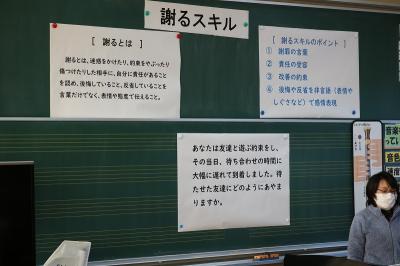 謝るスキル
[ 謝るとは ]
謝るとは、迷惑をかけたり、約束をやぶったり
傷つけたりした相手に、自分に責任があること
を認め、後悔していること、反省していることを
言葉だけでなく、表情や態度で伝えること。
[ 謝るスキルのポイント ]
① 謝罪の言葉
② 責任の受容
③ 改善の約束
④ 後悔や反省を非言語(表情や
しぐさなど)で感情表現
あなたは友達と遊ぶ約束をし、
その当日、待ち合わせの時間に
大幅に遅れて到着しました。待
たせた友達にどのようにあやま
りますか。
音楽を